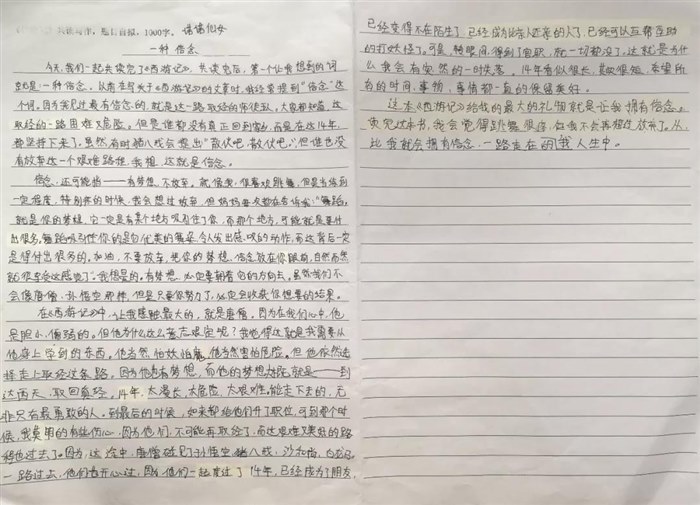 共读写作，题目自拟，1000字。 诺诺仙女
一种 信念
今天，我们一起共读完了《西游记》，共读完后，第一个让我想到的词
就是：一种信念。以前在写关于《西游记》的文章时，我经常提到“信念”这
个词，因为我见过最有信念的，就是这一路取经的师徒五，大家都知道，这
取经的一路困难又危险，但是谁都没有真正回到家乡，而是在这14年，
都坚持下来了，虽然有时猪八戒会提出“散伙吧，散伙吧，”但谁也没
有放弃这一个艰难路程，我想，这就是信念。
信念，还可能指——有梦想，不放弃。就像我，很喜欢跳舞，但是当练到
一定程度，特别疼的时候，我会想过放弃，但妈妈每次都在告诉我：“舞蹈，
就是你的梦想，它一定是有某个地方吸引住了你，而那个地方，可能就是要付
出很多，舞蹈吸引住你的是它优美的舞姿，令人发出感叹的动作，而这背后一定
是得付出很多的。加油，不要放弃，把你的梦想，信念放在你眼前，自然而然
就很享受这感觉了”。我想是的。有梦想，必定要朝着它的方向去，虽然我们不
会像唐僧，孙悟空那样，但是只要你努力了，必定会收获你想要的结果。
在《西游记》中，让我感触最大的，就是唐僧，因为在我们心中，他
是胆小，懦弱的。但他为什么这么意志坚定呢？我觉得这就是我需要从
他身上学到的东西。他当然怕妖怕魔，他当然害怕危险。但他依然选
择走上取经这条路，因为他有梦想，而他的梦想就是——到
达西天，取回真经。14年，太漫长，太危险，太艰难，能走下去的，无
非只有最勇敢的人。到最后的时候，如来都给他们升了职位，可到那个时
候，我真的有些伤心，因为他们，不可能再取经了，而这艰难又美好的路
程也过去了。因为，这途中，唐僧碰见了孙悟空，猪八戒，沙和尚，白龙马
一路过去，他们有开心过，因为他们一起度过了14年，已经成为了朋友，
已经变得不在陌生了，已经成为比亲人还亲的人了，已经可以互帮互助
的打妖怪了。可是，转眼间，得到了官职，就一切都没了，这就是为什
么我会有突然的一时失落。14年看似很长，其实很短，希望所
有的时间，事物，事情都一直的保留美好。
这本《西游记》给我的最大的礼物就是让我拥有信念。
读完这本书，我会觉得跳舞很疼，但我不会再想过放弃了。从
此我就会拥有信念，一路走在我人生中。